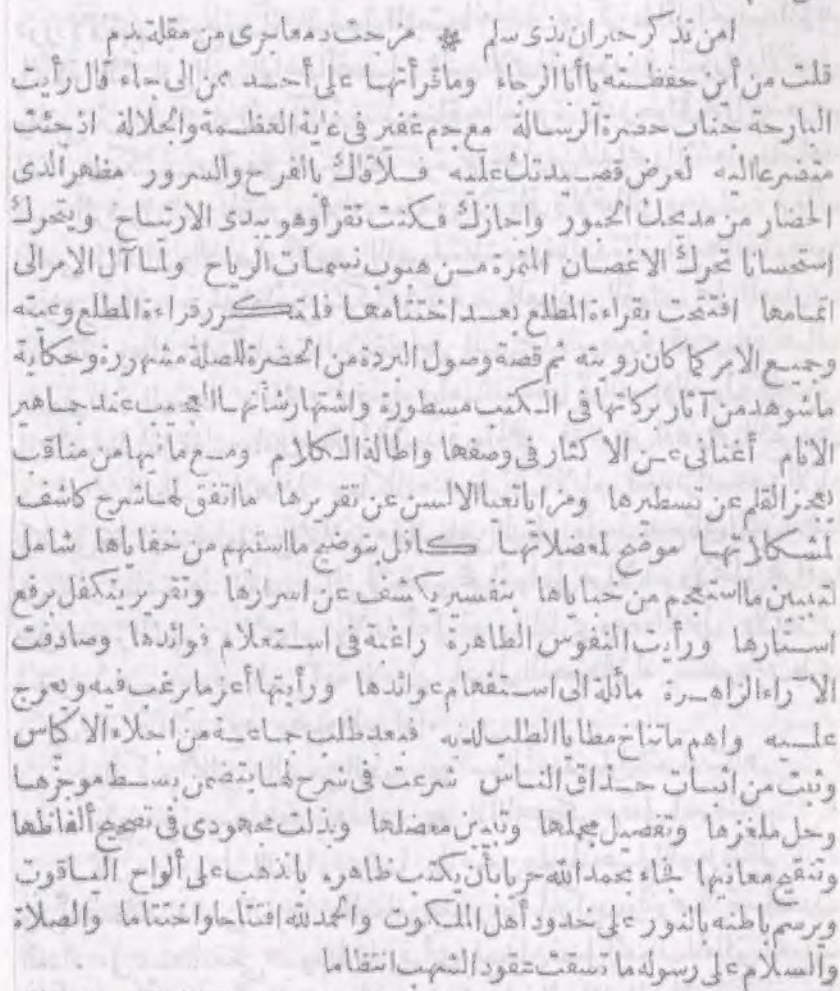 امن تذكر جيران بذى سلم * مزجت دمعا جرى من مقلة بدم
قلت من أين حفظته يا أبا الرجاء وما قرأتها على أحد ممن الى جاء قال رأيت
البارحة جناب حضرة الرسالة مع جم غفير فى غاية العظمة والجلالة اذ جئت
متضرعا اليه لعرض قصيدتك عليه فلاقاك بالفرح والسرور مظهر الدى
الحضار من مدحك الحبور واجازك فكنت تقرأ وهو يبدى الارتياح ويتحرك
استحسانا تحرك الاغصان المثمرة من هبوب نسمات الرياح ولما آل الامر الى
اتمامها افتتحت بقراءة المطلع بعد اختتامها فلم تكرر قراءة المطلع وعيته
وجميع الامر كما كان رويته ثم قصة وصول البردة من الحضرة للصلة مشهورة وحكاية
ما شوهد من آثار بركاتها فى الكتب مسطورة واشتهار شأنها العجيب عند جماهير
الانام أغنانى عن الاكثار فى وصفها واطالة الكلام ومع ما فيها من مناقب
يعجز القلم عن تسطيرها ومزايا تعيا الالسن عن تقريرها ما اتفق لها شرح كاشف
لمشكلاتها موضح لمعضلاتها كافل بتوضيح ما استبهم من خفاياها شامل
لتبيين ما استعجم من خباياها بتفسير يكشف عن اسرارها وتقرير يتكفل برفع
استارها ورأيت النفوس الطاهرة راغبة فى استعلام فوائدها وصادفت
الآراء الزاهرة مائلة الى استفهام عوائدها ورأيتها أعز ما يرغب فيه ويعرج
عليه واهم ما تناخ مطايا الطلب لديه فبعد طلب جماعة من اجلاء الاكياس
وثبت من اثبات حذاق الناس شرعت فى شرح لها يتضمن بسط موجزها
وحل ملغزها وتفصيل مجملها وتبيين معضلها وبذلت مجهودى فى تصحيح ألفاظها
وتنقيح معانيها فجاء بحمد الله حريا بأن يكتب ظاهره بالذهب على ألواح الياقوت
ويرسم باطنه بالنور على خدود أهل الملكوت والحمد لله افتتاحا واختتاما والصلاة
والسلام على رسوله ما تسقت عقود الشهب انتظاما